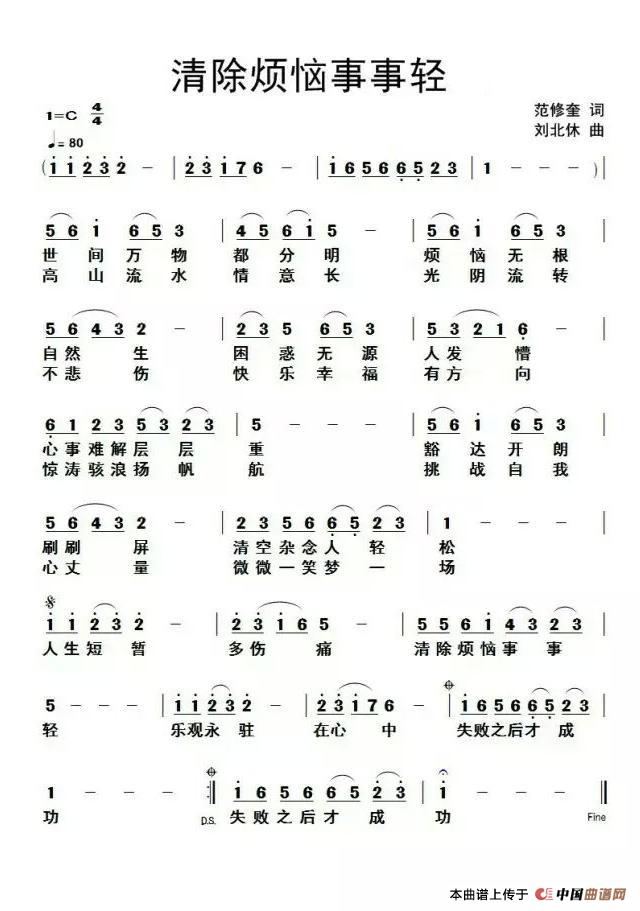 清除烦恼事事轻
1=C 4/4
范修奎 词
♩=80
刘北休 曲
(1 1 2 3 2 – | 2 3 1 7 6 – | 1 6 5 6 6 5 2 3 | 1 – – –)|
5 6 1 6 5 3 | 4 5 6 1 5 – | 5 6 1 6 5 3 |
世间万物 都分明 烦恼无根
高山流水 情意长 光阴流转
5 6 4 3 2 – | 2 3 5 6 5 3 | 5 3 2 1 6 – |
自然生 困惑无源 人发懵
不悲伤 快乐幸福 有方向
6 1 2 3 5 3 2 3 | 5 – – – | 5 6 1 6 5 3 |
心事难解层层 重 豁达开朗
惊涛骇浪扬帆 航 挑战自我
5 6 4 3 2 – | 2 3 5 6 6 5 2 3 | 1 – – – |
刷刷屏 清空杂念人轻 松
心丈量 微微一笑梦一 场
1 1 2 3 2 – | 2 3 1 2 6 – | 5 5 6 1 4 3 2 3 |
人生短暂 多伤痛 清除烦恼事事
5 – – – | 1 1 2 3 2 – | 2 3 1 7 6 – | 1 6 5 6 6 5 2 3 |
轻 乐观永驻 在心中 失败之后才成
1 – – – :| 1 6 5 6 6 5 2 3 | 1 – – – ||
功 D.S. 失败之后才成 功 Fine
本曲谱上传于 中国曲谱网